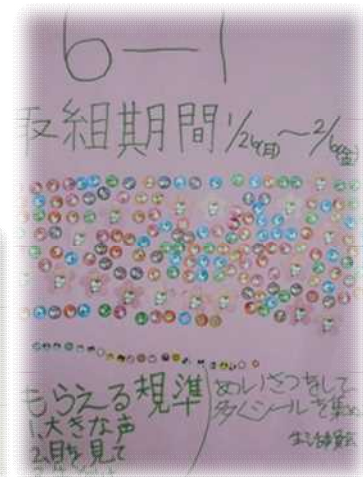 6-1
取組期間 1/26(月)~2/6(金)
もらえる規準
1.大きな声
2.目を見て
あいさつをして
多くシールを集め